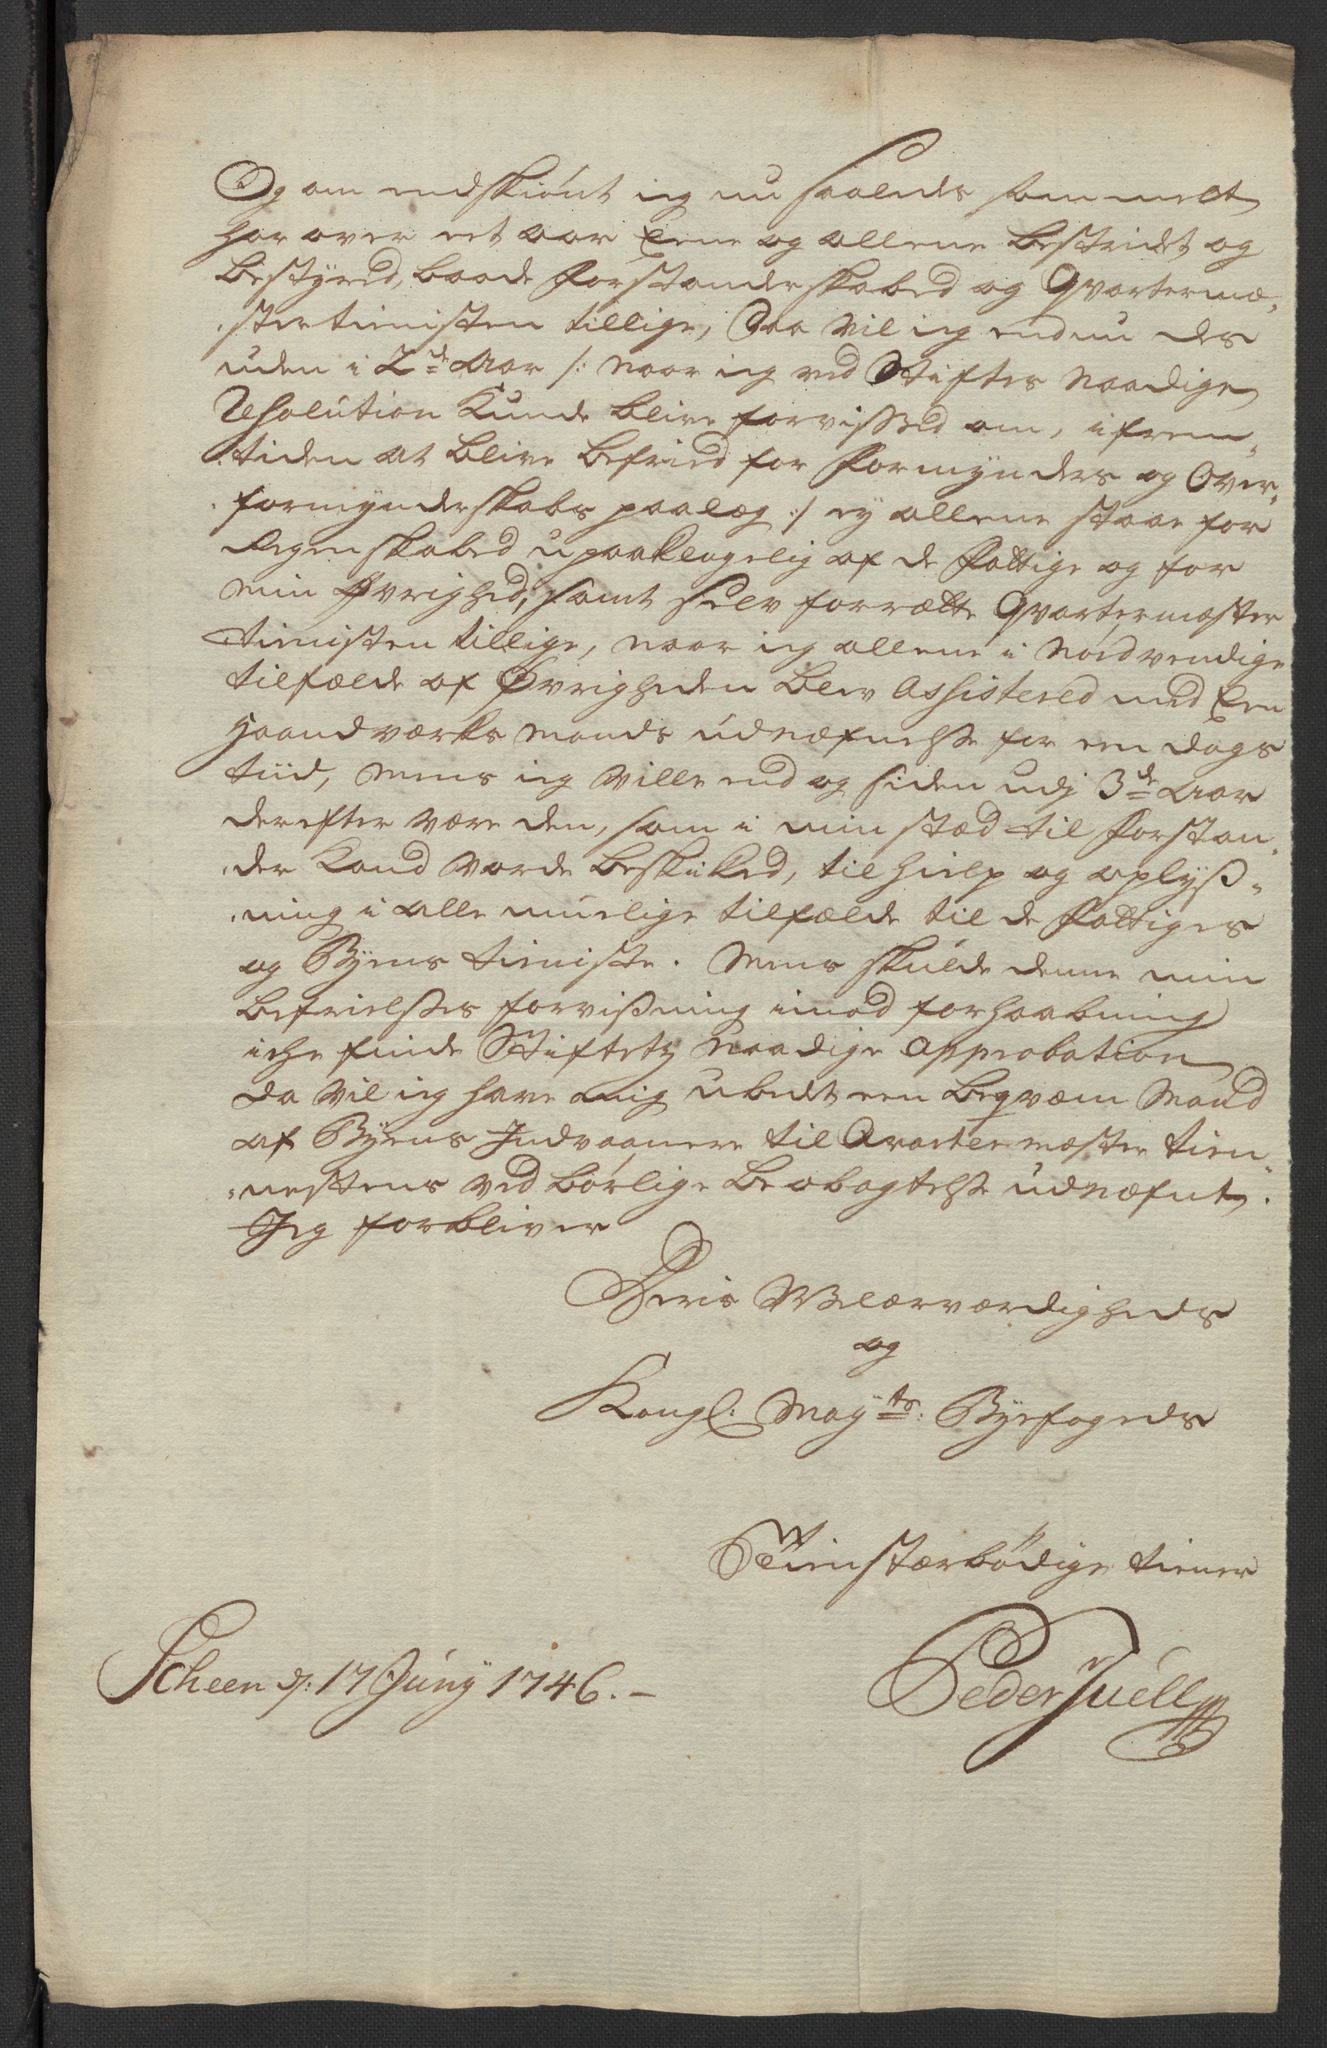 Og om endskiönt ieg nu saaleds som melt
har over eet aar Eene og allene bestridt og
bestyred, baade Forstanderskabed og Qvartermæ,,
,,stertienisten tillige, Saa vil ieg endnu des
uden i 2de Aar /: naar ieg ved Stiftes Naadige
Resolution kunde blive forvissed om, i frem,,
,,tiden at blive befried for Formynders og Over,,
,,formynderskabs paalæg :/ ey allene staae for
Regenskabed upaaklagelig af de Fattige og for
min Øvrighed, samt selv forrætte Qvartermæster
tienisten tillige, naar ieg allene i Nödvendige
tilfælde af Øvrigheden blev Assistered med Een
Haandværks Mands udnæfnelse for een dags
tiid, Mens ieg ville end og siden udj 3de Aar
derefter være den, som i min stæd til Forstan,,
,,der kand vorde beskiked, til hielp og oplyß,,
,,ning i alle muelige tilfælde til de Fattiges
og Byens tieniste. Mens skulde denne min
befrielses forvißning imod forhaabning
iche finde Stiftetz Naadige Approbation
da vil ieg have mig ubedt een beqvæm Mand
af Byens Indvaanere til Qvartermæster tien,,
,,nestens ved börlige beobagtelse udnæfnt.
Jeg forbliver
Deris Velærværdigheds
og
Kongl: Mayts: Byefogeds
Tienstærbödige tiener
Scheen d: 17 Juny 1746. –
Peder Juell